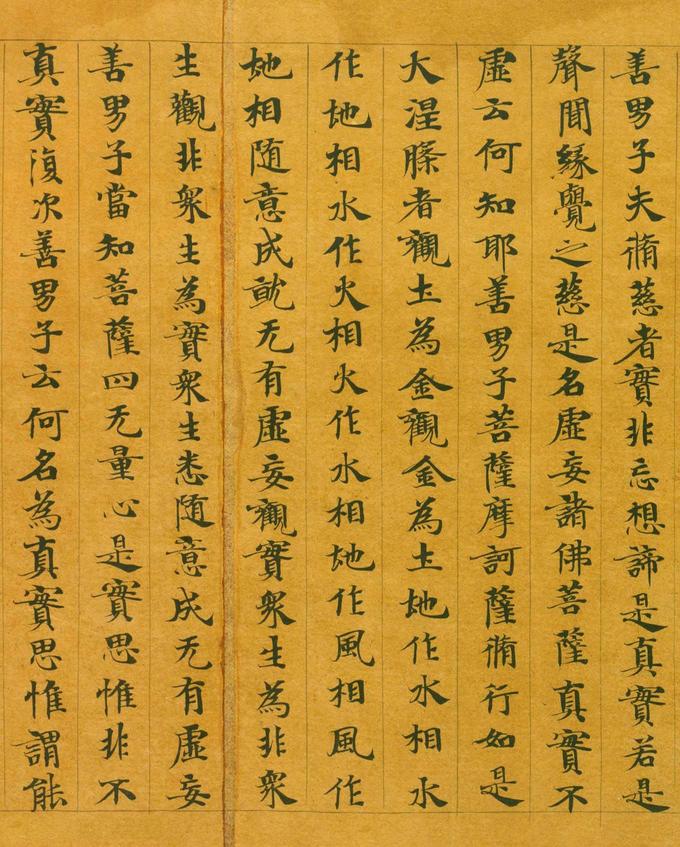 善男子夫脩慈者實非忘想諦是真實若是
聲聞緣覺之慈是名虛妄諸佛菩薩真實不
虛云何知耶善男子菩薩摩訶薩脩行如是
大涅槃者觀土為金觀金為土地作水相水
作地相水作火相火作水相地作風相風作
地相随意成就无有虛妄觀實衆生為非衆
生觀非衆生為實衆生悉随意成无有虛妄
善男子當知菩薩四无量心是實思惟非不
真實復次善男子云何名為真實思惟謂能